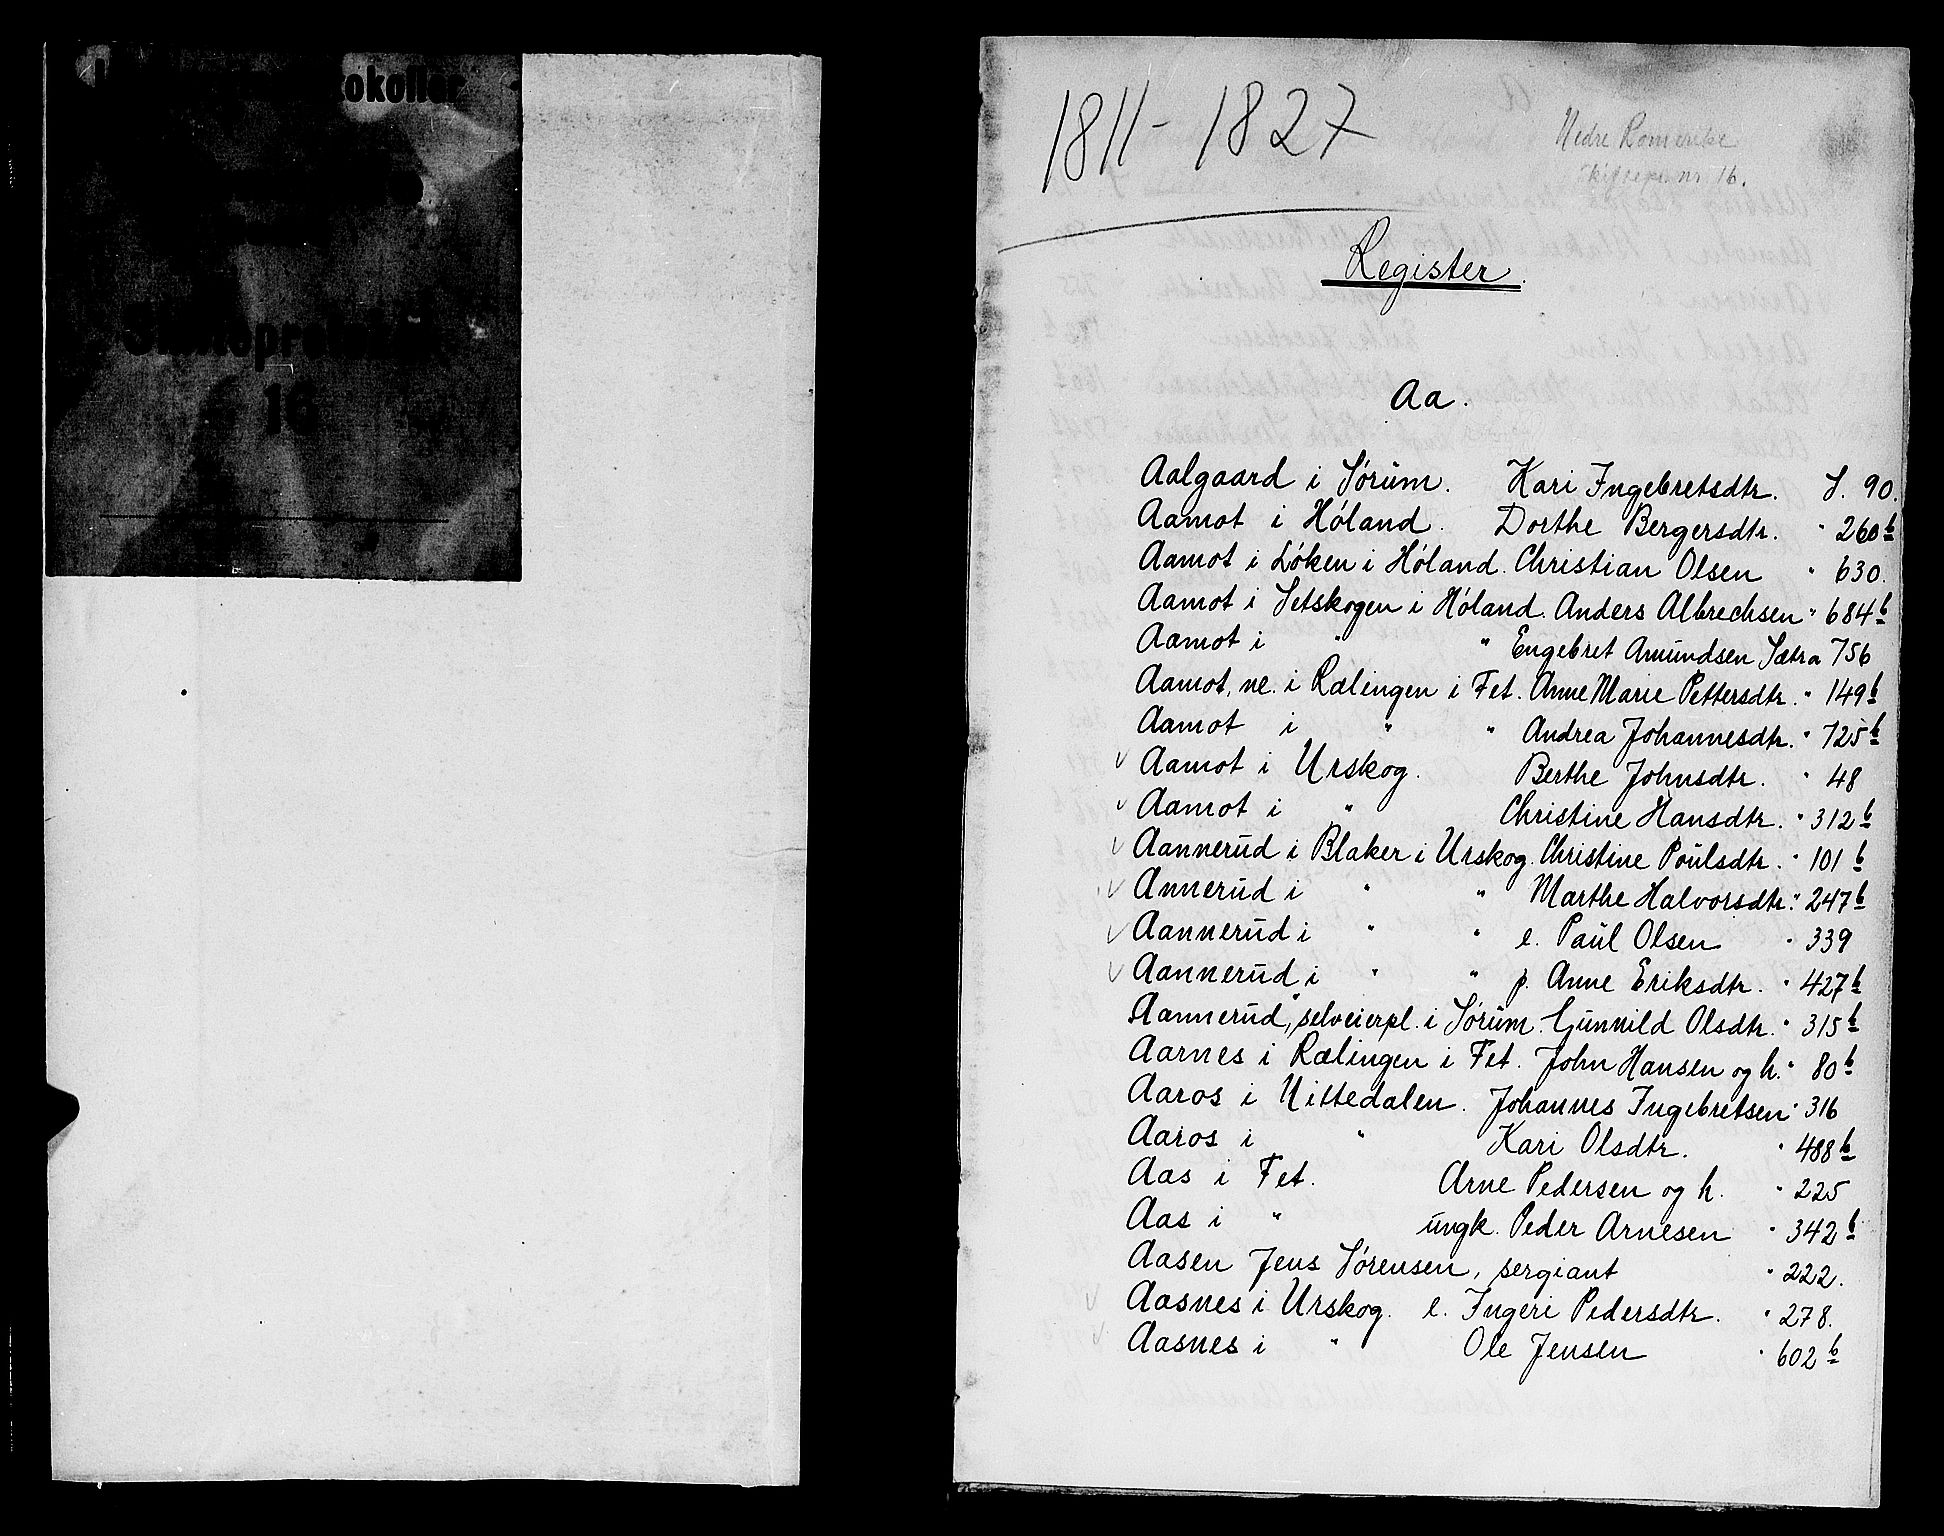 okoller
16
1811 - 1827
Nedre Romerike
nr 16.
Register.
Aa.
Aalgaard i Sörum. Kari Ingebretsdtr. S. 90.
Aamot i Höland. Dorthe Bergersdtr. " 260 b
Aamot i Löken i Höland. Christian Olsen " 630.
Aamot i Setskogen i Höland. Anders Albrechsen " 684 b
Aamot i " " Engebret Amundsen Sætra 756
Aamot, ne. i Rælingen i Fet. Anne Marie Pettersdtr. " 149 b
Aamot i " " Andrea Johannesdtr. " 725 b
√ Aamot i Urskog. Berthe Johnsdtr. " 48
√ Aamot i " Christine Hansdtr. " 312 b
√ Aannerud i Blaker i Urskog. Christine Poulsdtr. " 101 b
√ Annerud i " " Marthe Halvorsdtr. " 247 b
√ Aannerud i " " e. Paul Olsen " 339
√ Aannerud i " " p. Anne Eriksdtr. " 427 b
Aannerud, selveierpl. i Sörum. Gunnild Olsdtr. " 315 b
Aarnes i Rælingen i Fet. John Hansen og h. " 80 b
Aaros i Nittedalen. Johannes Ingebretsen " 316
Aaros i " Kari Olsdtr. " 488 b
Aas i Fet. Arne Pedersen og h. " 225
Aas i " ungk. Peder Arnesen " 342 b
Aasen Jens Sörensen, sergiant " 222.
√ Aasnes i Urskog. e. Ingeri Pedersdtr. " 278.
√ Aasnes i " Ole Jensen " 602 b